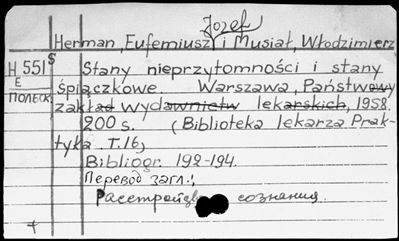 Józef
Herman, Eufemiusz i Musiał, Włodzimierz
H 551 s
E
ПОЛЕСК.
Stany nieprzytomności i stany
śpiączkowe. Warszawa, Państwowy
zakład wydawnictw lekarskich, 1958,
200 s. (Biblioteka lekarza Prak-
tyka T.16)
Bibliogr. 192-194.
Перевод загл.:
Расстройсв сознания.